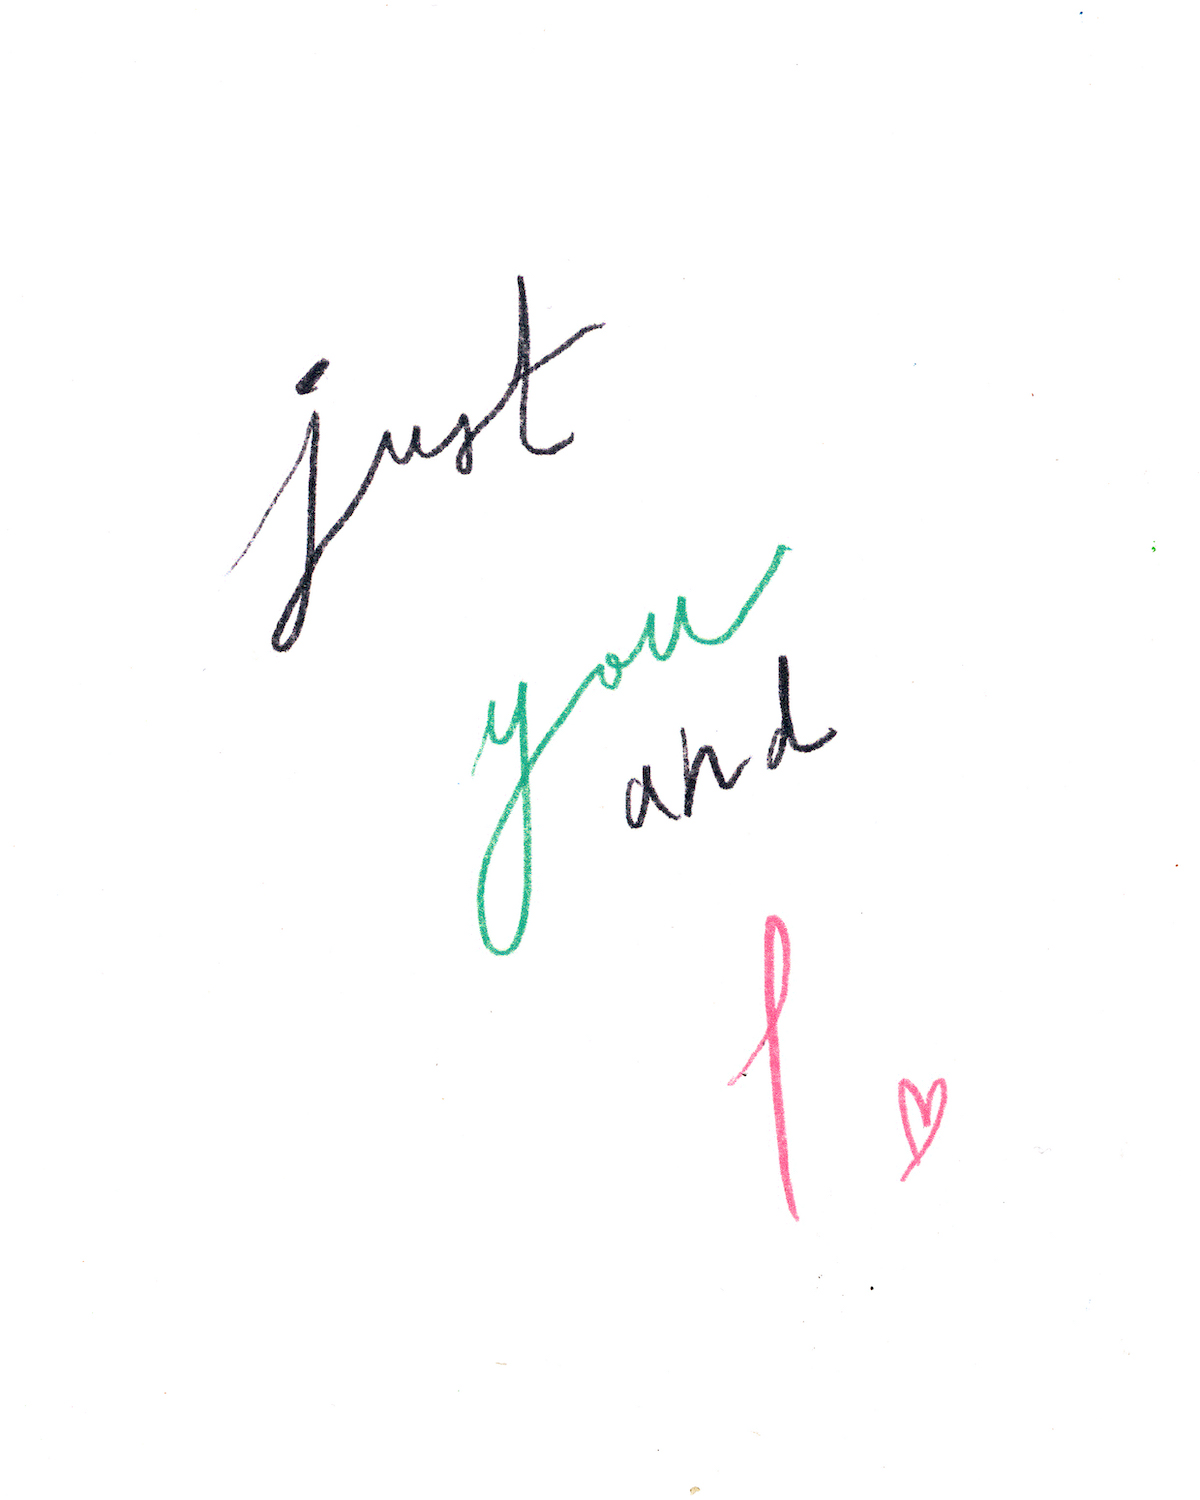 just
you
and
I